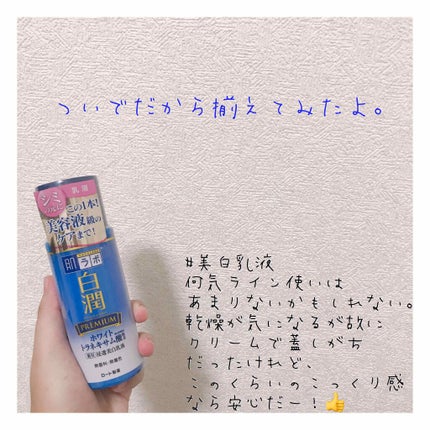 ついでだから揃えてみたよ。
シミ
乳液
この1本!
美容液級の
ケアまで!
肌ラボ
白潤
PREMIUM
ホワイト
トラネキサム酸
薬用浸透美白乳液
無香料・無着色
ロート製薬
#美白乳液
何気ライン使いは
あまりないかもしれない。
乾燥が気になるが故に
クリームで蓋しがち
だったけれど、
このくらいのこっくり感
なら安心だー!👍